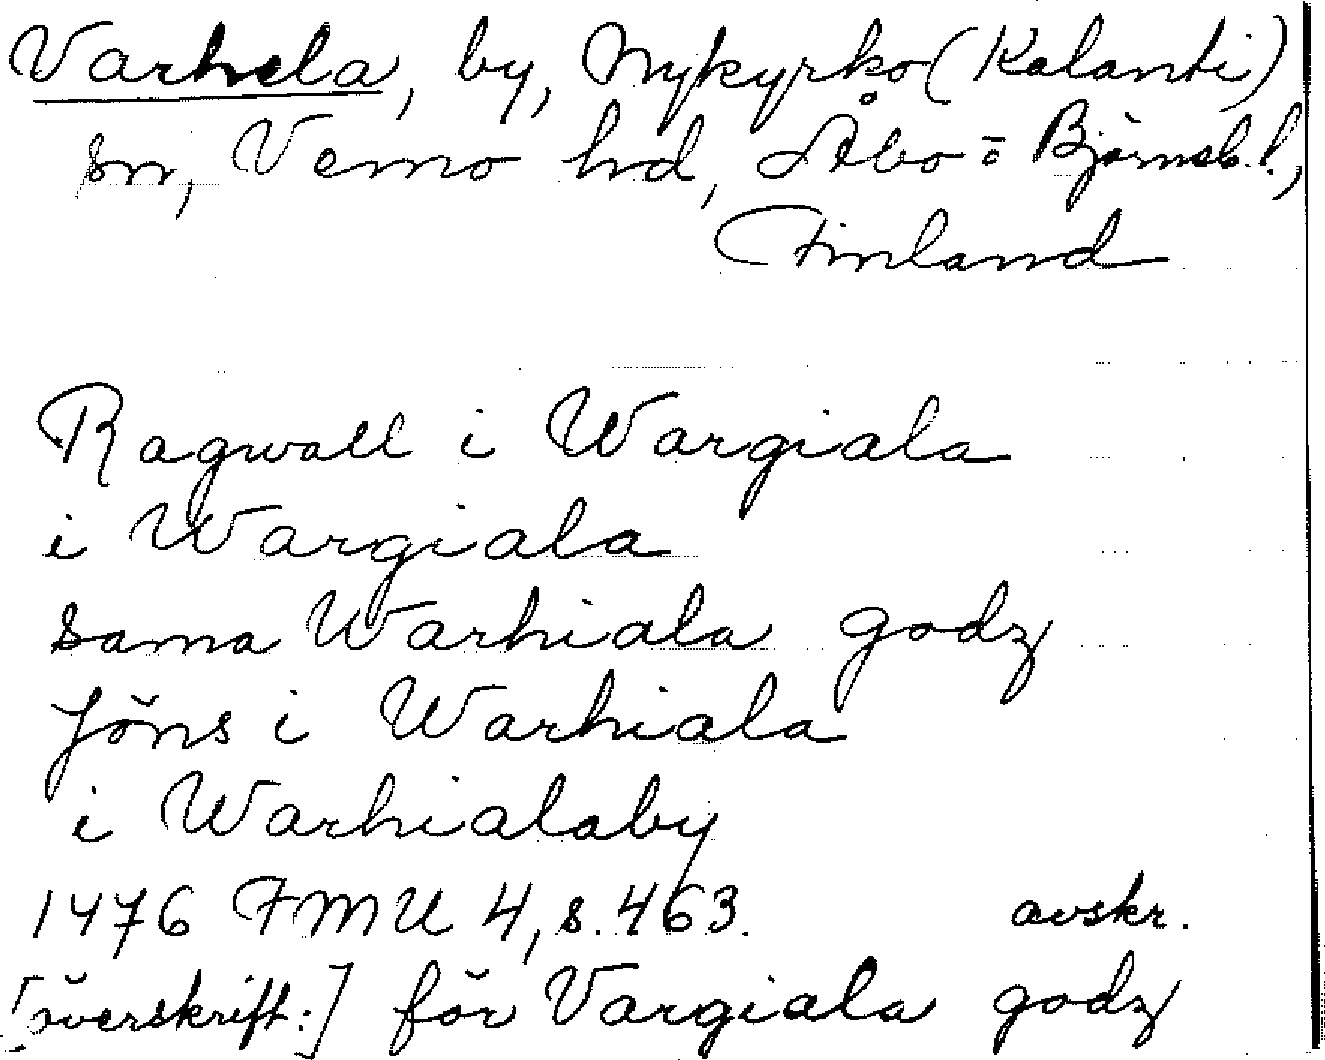 Varhela, by, Nykyrko (Kalanti)
sn, Vemo hd, Åbo o Björneb. l.,
Finland
Ragwall i Wargiala
i Wargiala
sama Warhiala godz
Jöns i Warhiala
i Warhialaby
1476 FMU 4, s. 463. avskr.
[överskrift:] för Vargiala godz